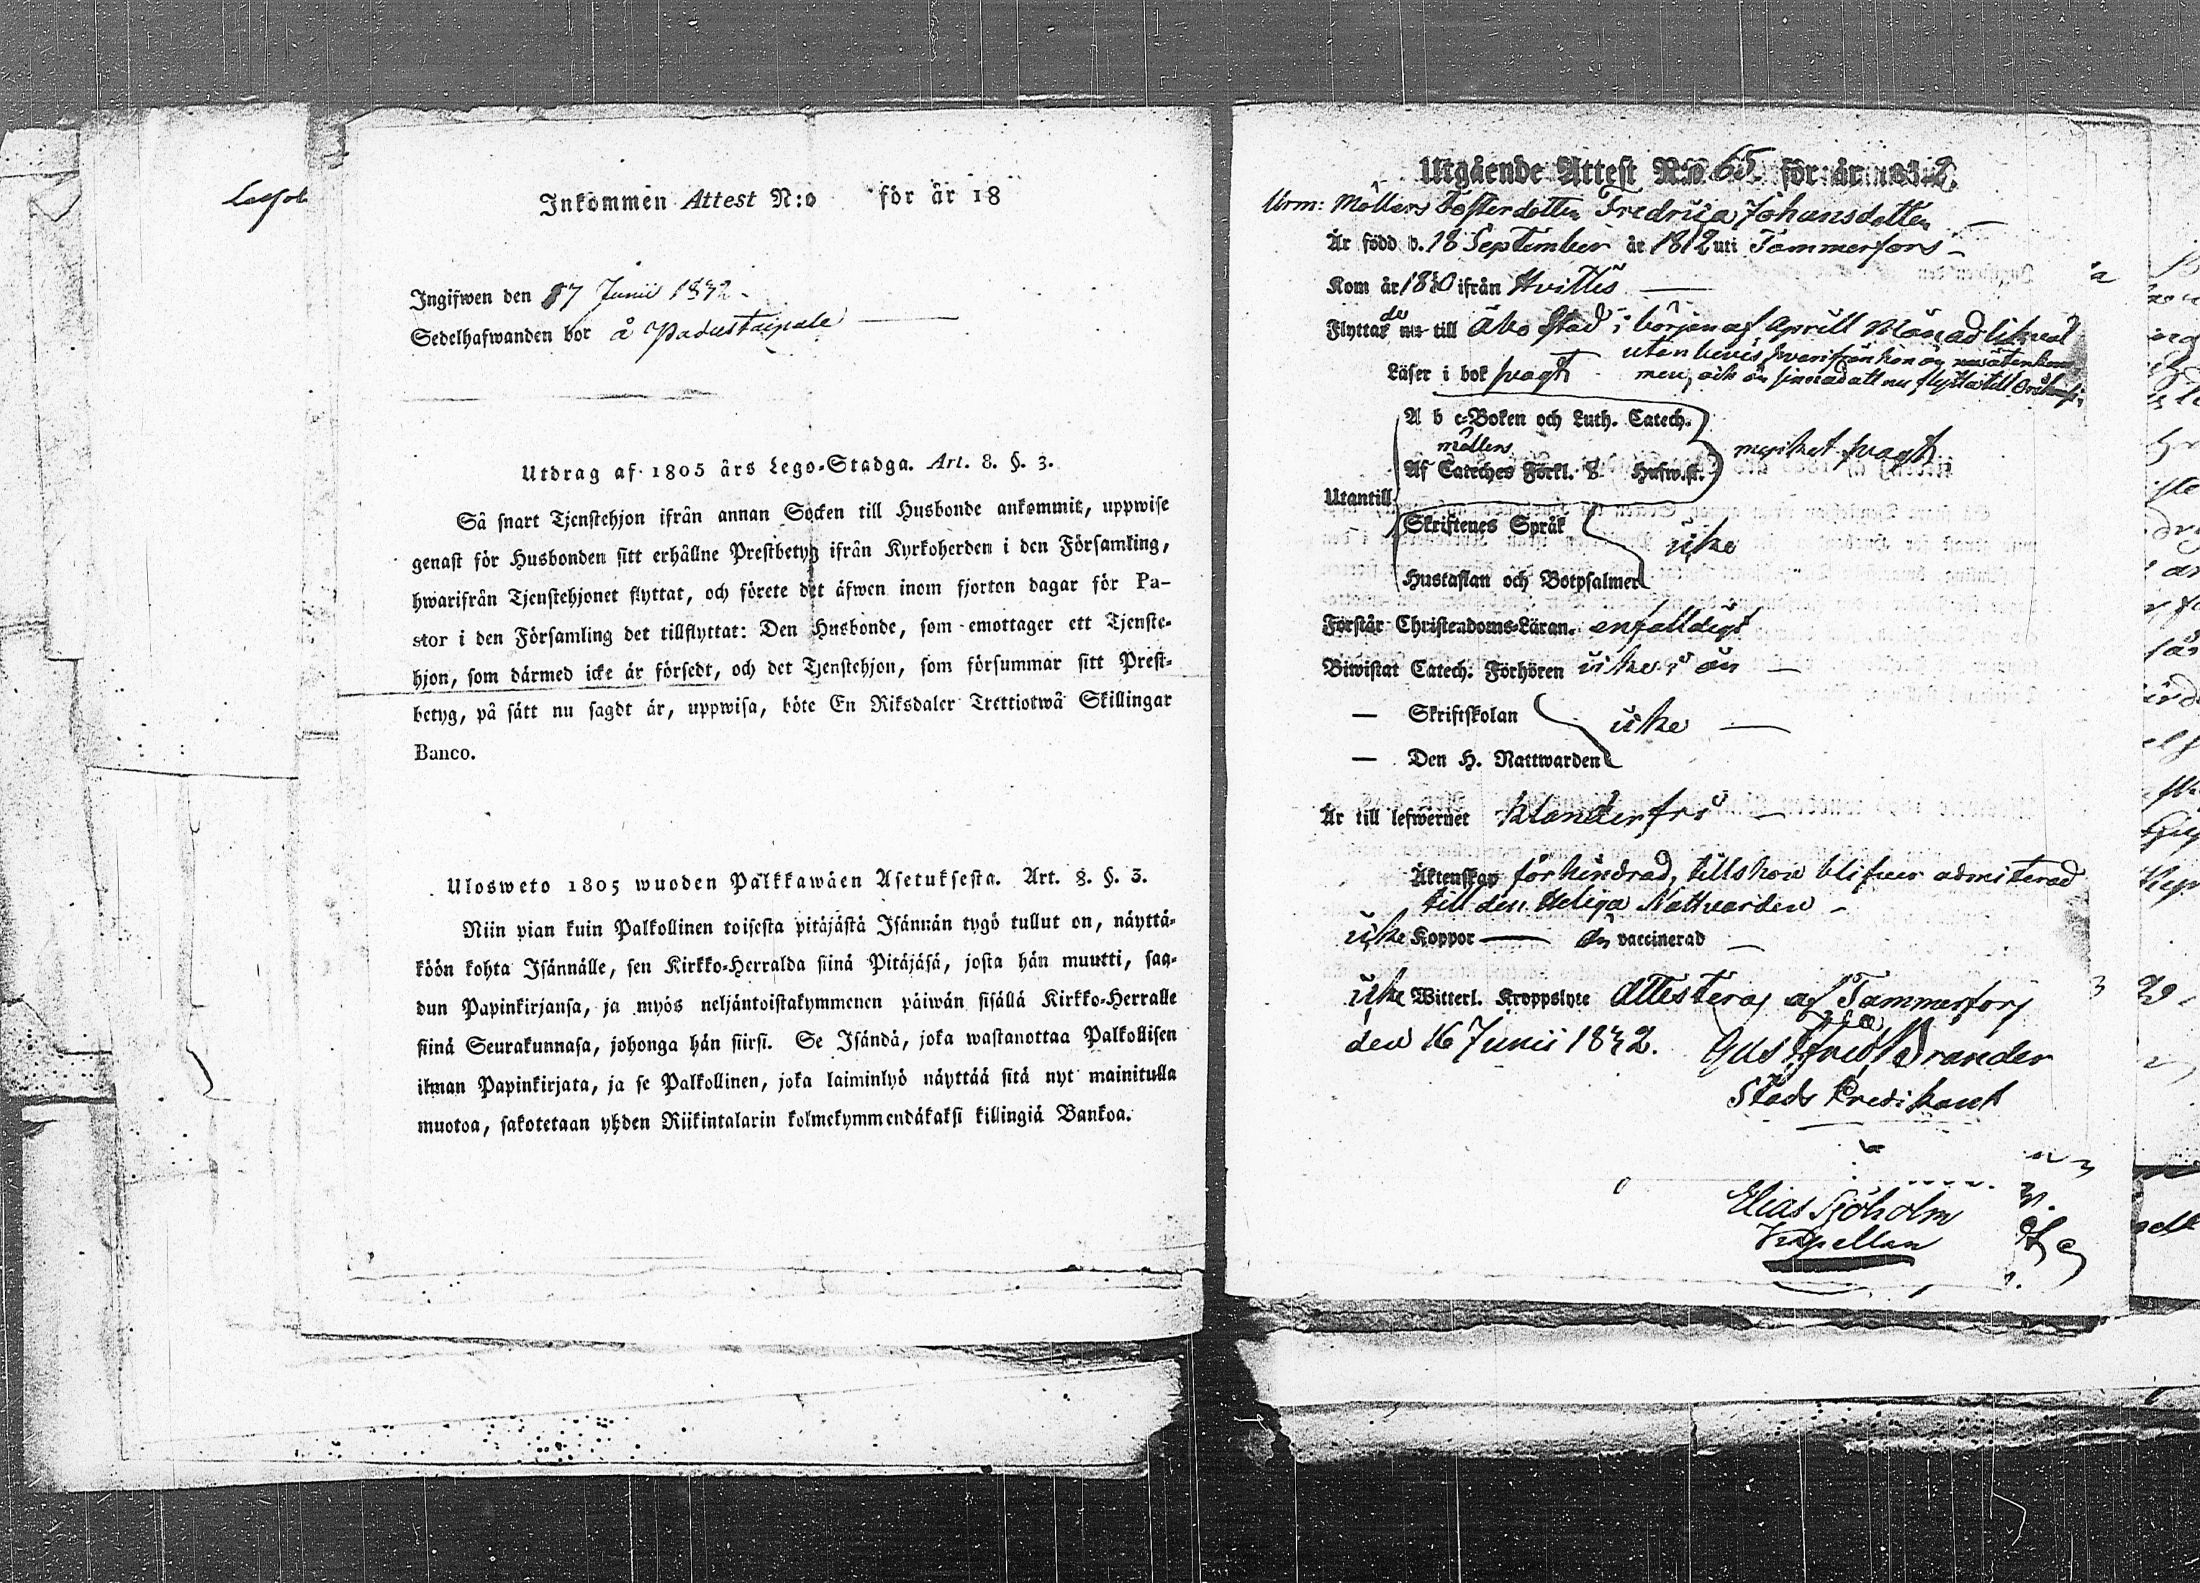 Inkommen Attest N:o för år 18
Ingifwen den 17 Junii 1832
Sedelhafwanden bor å
Utdrag af 1805 års Lego-Stadga. Art. 8. §. 3.
Så snart Tjenstehjon ifrån annan Socken till Husbonde ankommit, uppwise
genast för Husbonden sitt erhållne Prestbetyg ifrån Kyrkoherden i den Församling,
hwarifrån Tjenstehjonet flyttat, och förete det äfwen inom fjorton dagar för Pa-
stor i den Församling det tillflyttat: Den Husbonde, som emottager ett Tjenste-
hjon, som därmed icke är försedt, och det Tjenstehjon, som försummar sitt Prest-
betyg, på sätt nu sagdt är, uppwisa, böte En Riksdaler Trettiotwå Skillingar
Banco.
Ulosweto 1805 wuoden Palkkawäen Asetuksesta. Art. 8. §. 3.
Niin pian kuin Palkollinen toisesta pitäjästä Isännän tygö tullut on, näyttä-
köön kohta Isännälle, sen Kirkko-Herralda siinä Pitäjäsä, josta hän muutti, saa-
dun Papinkirjansa, ja myös neljäntoistakymmenen päiwän sisällä Kirkko-Herralle
siinä Seurakunnasa, johonga hän siirsi. Se Isändä, joka wastanottaa Palkollisen
ilman Papinkirjata, ja se Palkollinen, joka laiminlyö näyttää sitä nyt mainitulla
muotoa, sakotetaan yhden Riikintalarin kolmekymmendäkaksi killingiä Bankoa.
Utgående Attest N:o 65. för år 1832.
Urm: Möllers Fosterdotter Fredrica Johansdotter
Är född d. 18 September år 1812 uti Tammerfors
Kom år 1830 ifrån Hvittis
Flyttade nu till Åbo Stad i början af Aprill Månad likväl
utan bevis hvarifrån hon är återkom
men, och är sinnad att nu flytta till
Läser i bok svagt
A b c-Boken och Luth. Catech.
möllers
Af Cateches Förkl. 8 Hufw.st. mycket svagt
Utantill
Skriftenes Språk
icke
Hustaflan och Botpsalmer
Förstår Christendoms-Läran. enfalldigt
Biwistat Catech. Förhören icke i år
— Skriftskolan
icke
— Den H. Nattwarden
Är till lefwernet klanderfri
Äktenskap förhindrad, tills hon blifver admitterad
till den Heliga Nattvarden
icke Koppor är vaccinerad
icke Witterl. Kroppslyte Attesteras af Tammerfors
den 16 Junii 1832. Gust. Fred. Brander
Stads Predikant
Elias Sjöholm
Kapellan